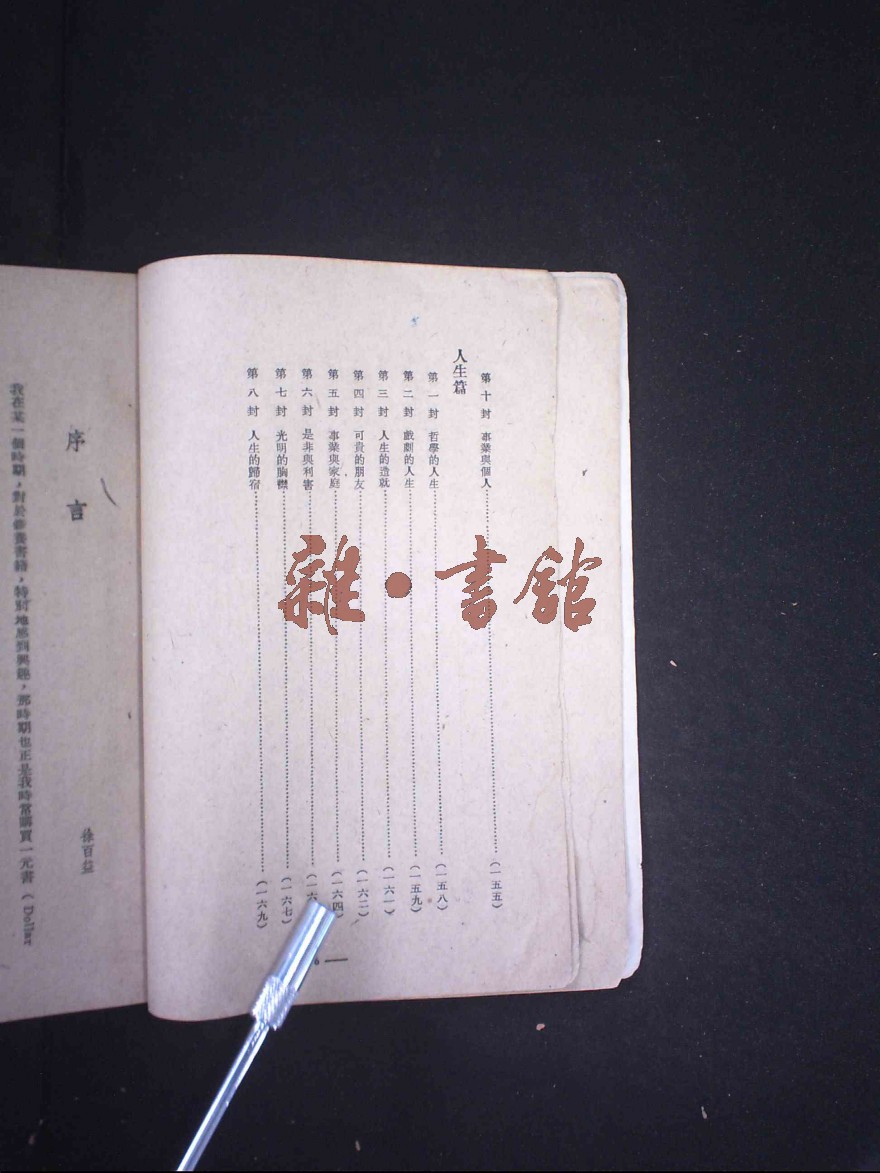 第十封 事業與個人……(一五五)
人生篇
第一封 哲學的人生……(一五八)
第二封 戲劇的人生……(一五九)
第三封 人生的造就……(一六一)
第四封 可貴的朋友……(一六二)
第五封 事業與家庭……(一六四)
第六封 是非與利害……(一六
第七封 光明的胸襟……(一六七)
第八封 人生的歸宿……(一六九)
6 —
雜·書館
序言
徐百益
我在某一個時期，對於修養書籍，特別地感到興趣，那時期也正是我時常購買一元書（Dollar